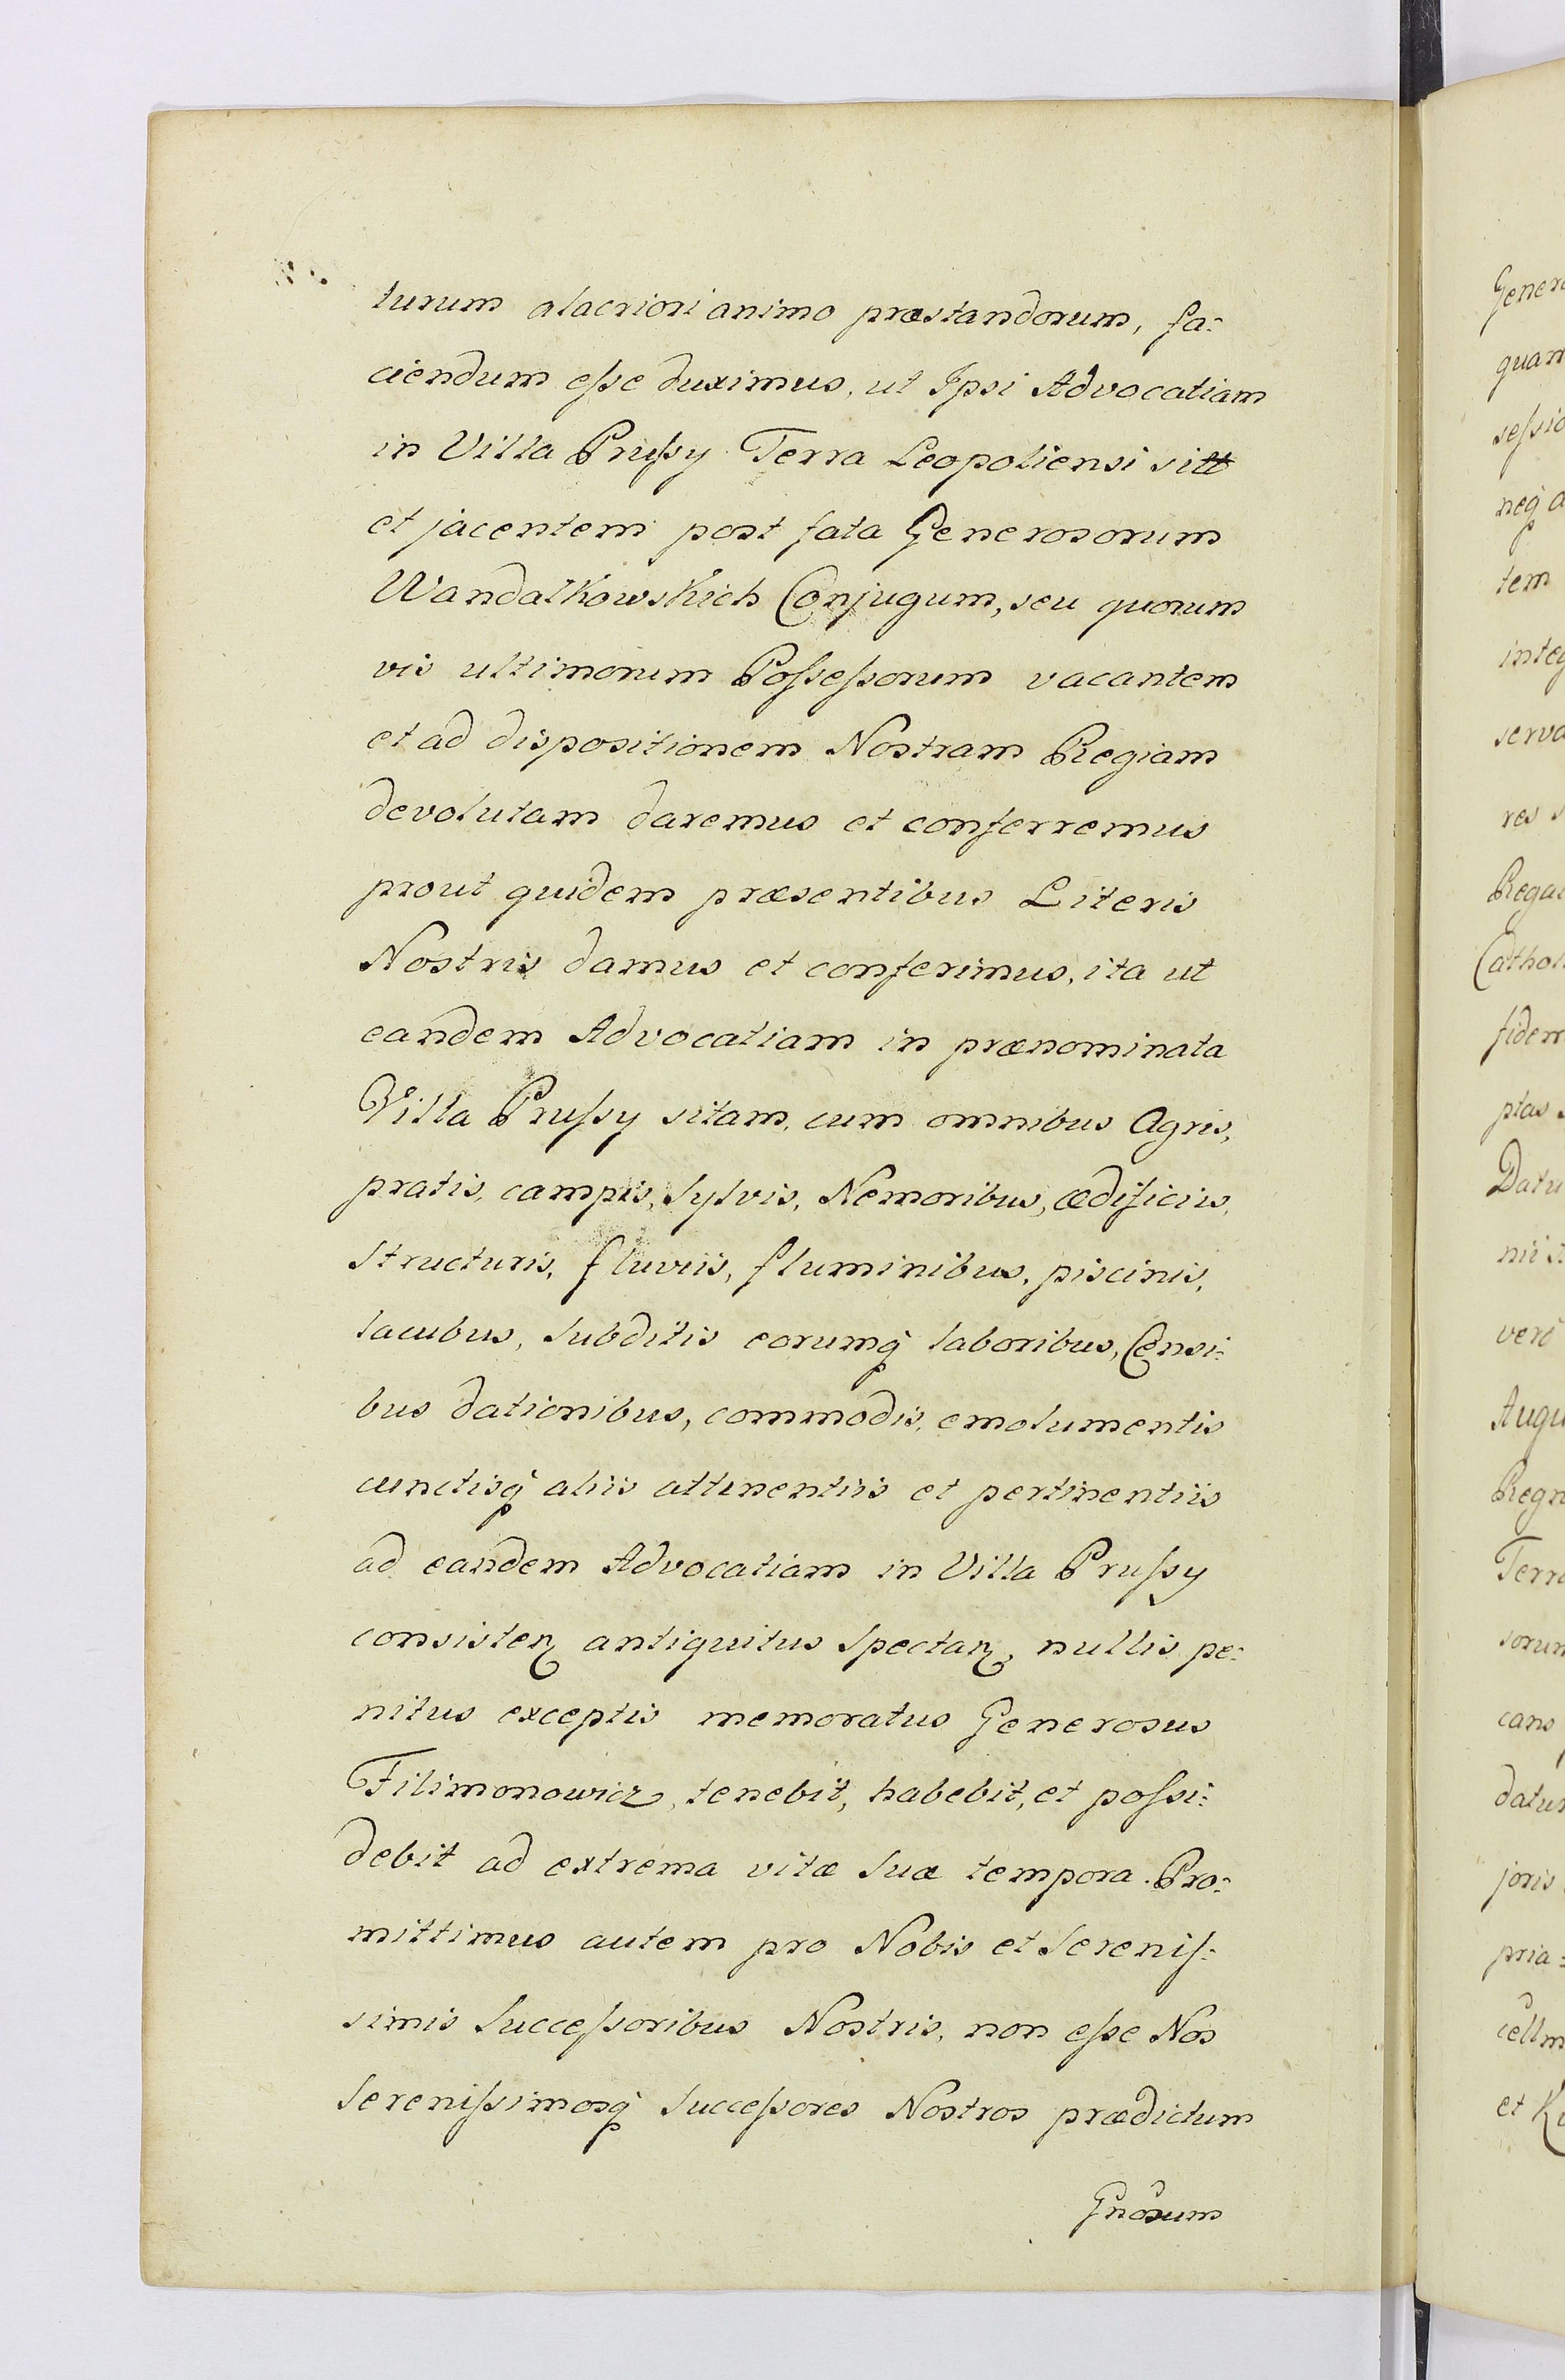 turum alacriori animo præstandorum, fa:
ciendum eſse duximus, ut Ipsi Advocatiam
in Villa Pruſsy Terra Leopoliensi sitt
et jacentem post fata Generosorum
Wandalkowskich Conjugum, seu quorum
vis ultimorum Poſseſsorum vacantem
et ad dispositionem Nostram Regiam
devolutam daremus et conferremus
prout quidem præsentibus Literis
Nostris damus et conferimus, ita ut
eandem Advocatiam in prænominata
Villa Pruſsy sitam, cum omnibus Agris,
pratis, campis, Sylvis, Nemoribus, ædificiis,
Structuris, fluviis, fluminibus, piscinis,
lacubus, Subditis eorumq̃ laboribus, Censi:
bus dationibus, commodis, emolumentis
cunctisq̃ aliis attinentiis et pertinentiis
ad eandem Advocatiam in Villa Pruſsy
consisteñ antiquitus Spectañ, nullis pe:
nitus exceptis memoratus Generosus
Filimonowicz, tenebit, habebit, et poſsi:
debit ad extrema vitæ Suæ tempora. Pro:
mittimus autem pro Nobis et Sereniſ:
simis Succeſsoribus Nostris, non eſse Nos
Sereniſsimosq̃ Succeſsores Nostros prædictum
Gnõsum
Genero
quam
seſsio
neq̃ a
tem
integ
serva
res s
Regal
Cathol
fidem
ptas s
Datu
nii
vero
Augu
Regn
Terra
sorum
cans
datur
joris
pria:
cellm
et K